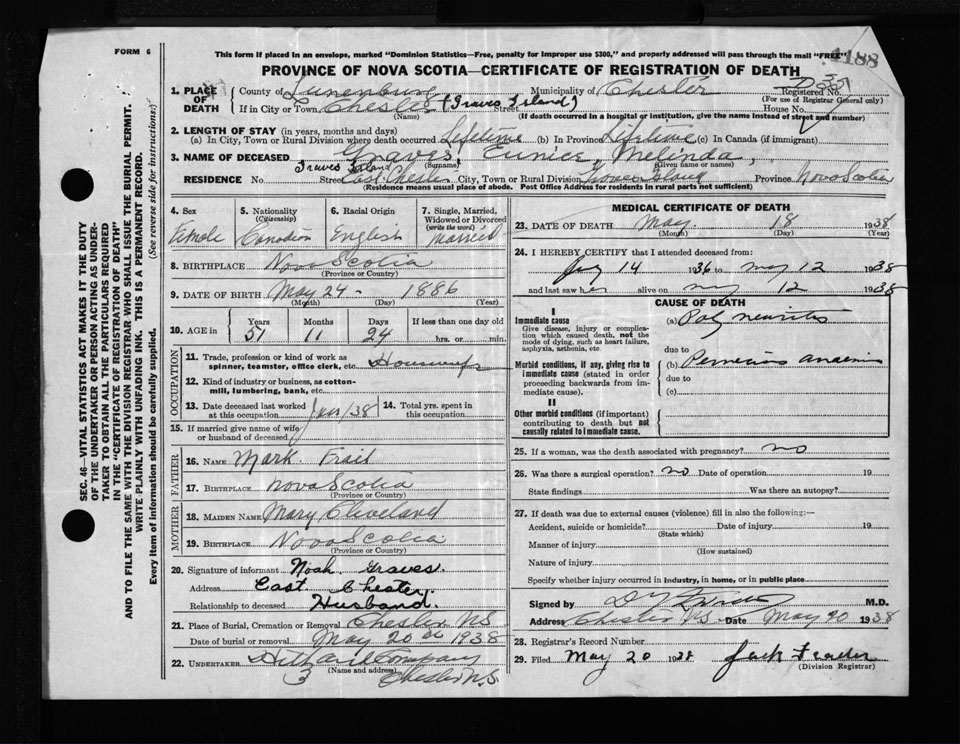 FORM 6
This form if placed in an envelope, marked "Dominion Statistics—Free, penalty for improper use $300," and properly addressed will pass through the mail "FREE"
4188
PROVINCE OF NOVA SCOTIA—CERTIFICATE OF REGISTRATION OF DEATH
1. PLACE OF DEATH
County of Lunenburg Municipality of Chester Registered No.
(For use of Registrar General only)
If in City or Town Chester (Graves Island) Street House No.
(Name) (If death occurred in a hospital or institution, give the name instead of street and number)
2. LENGTH OF STAY (in years, months and days)
(a) In City, Town or Rural Division where death occurred Lifetime (b) In Province Lifetime (c) In Canada (if immigrant)
3. NAME OF DECEASED Graves, Eunice, Melinda,
(Surname) (Given name or names)
RESIDENCE No. Graves Island Street East Chester City, Town or Rural Division Graves Island Province Nova Scotia
(Residence means usual place of abode. Post Office Address for residents in rural parts not sufficient)
4. Sex
Female
5. Nationality
(Citizenship)
Canadian
6. Racial Origin
English
7. Single, Married, Widowed or Divorced
(write the word)
Married
8. BIRTHPLACE Nova Scotia
(Province or Country)
9. DATE OF BIRTH May 24 - 1886
(Month) (Day) (Year)
10. AGE in
Years Months Days If less than one day old
51 11 24 hrs. or min.
OCCUPATION
11. Trade, profession or kind of work as spinner, teamster, office clerk, etc. Housewife
12. Kind of industry or business, as cotton-mill, lumbering, bank, etc.
13. Date deceased last worked at this occupation /38
14. Total yrs. spent in this occupation
15. If married give name of wife or husband of deceased
FATHER
16. NAME Mark Frail
17. BIRTHPLACE Nova Scotia
(Province or Country)
MOTHER
18. MAIDEN NAME Mary Cleveland
19. BIRTHPLACE Nova Scotia
(Province or Country)
20. Signature of informant Noah Graves.
Address East Chester.
Relationship to deceased Husband.
21. Place of Burial, Cremation or Removal Chester NS
Date of burial or removal May 20th 1938
22. UNDERTAKER Company
(Name and address)
Chester N.S.
3
MEDICAL CERTIFICATE OF DEATH
23. DATE OF DEATH May 18 1938
(Month) (Day) (Year)
24. I HEREBY CERTIFY that I attended deceased from:
14 1936 to May 12 1938
and last saw her alive on May 12 1938
CAUSE OF DEATH
I
Immediate cause
Give disease, injury or complication which caused death, not the mode of dying, such as heart failure, asphyxia, asthenia, etc.
(a) Poly neuritis
due to
Morbid conditions, if any, giving rise to immediate cause (stated in order proceeding backwards from immediate cause).
(b) Pernicious anaemia
due to
(c)
II
Other morbid conditions (if important) contributing to death but not causally related to immediate cause.
25. If a woman, was the death associated with pregnancy? no
26. Was there a surgical operation? no Date of operation 19
State findings Was there an autopsy?
27. If death was due to external causes (violence) fill in also the following:—
Accident, suicide or homicide? Date of injury 19
(State which)
Manner of injury
(How sustained)
Nature of injury
Specify whether injury occurred in industry, in home, or in public place
Signed by M.D.
Address Chester N.S. Date May 20 1938
28. Registrar's Record Number
29. Filed May 20 1938 Jack
(Division Registrar)
SEC. 46—VITAL STATISTICS ACT MAKES IT THE DUTY
OF THE UNDERTAKER OR PERSON ACTING AS UNDER-
TAKER TO OBTAIN ALL THE PARTICULARS REQUIRED
IN THE "CERTIFICATE OF REGISTRATION OF DEATH"
AND TO FILE THE SAME WITH THE DIVISION REGISTRAR WHO SHALL ISSUE THE BURIAL PERMIT.
WRITE PLAINLY WITH UNFADING INK. THIS IS A PERMANENT RECORD.
Every item of information should be carefully supplied. (See reverse side for instructions.)